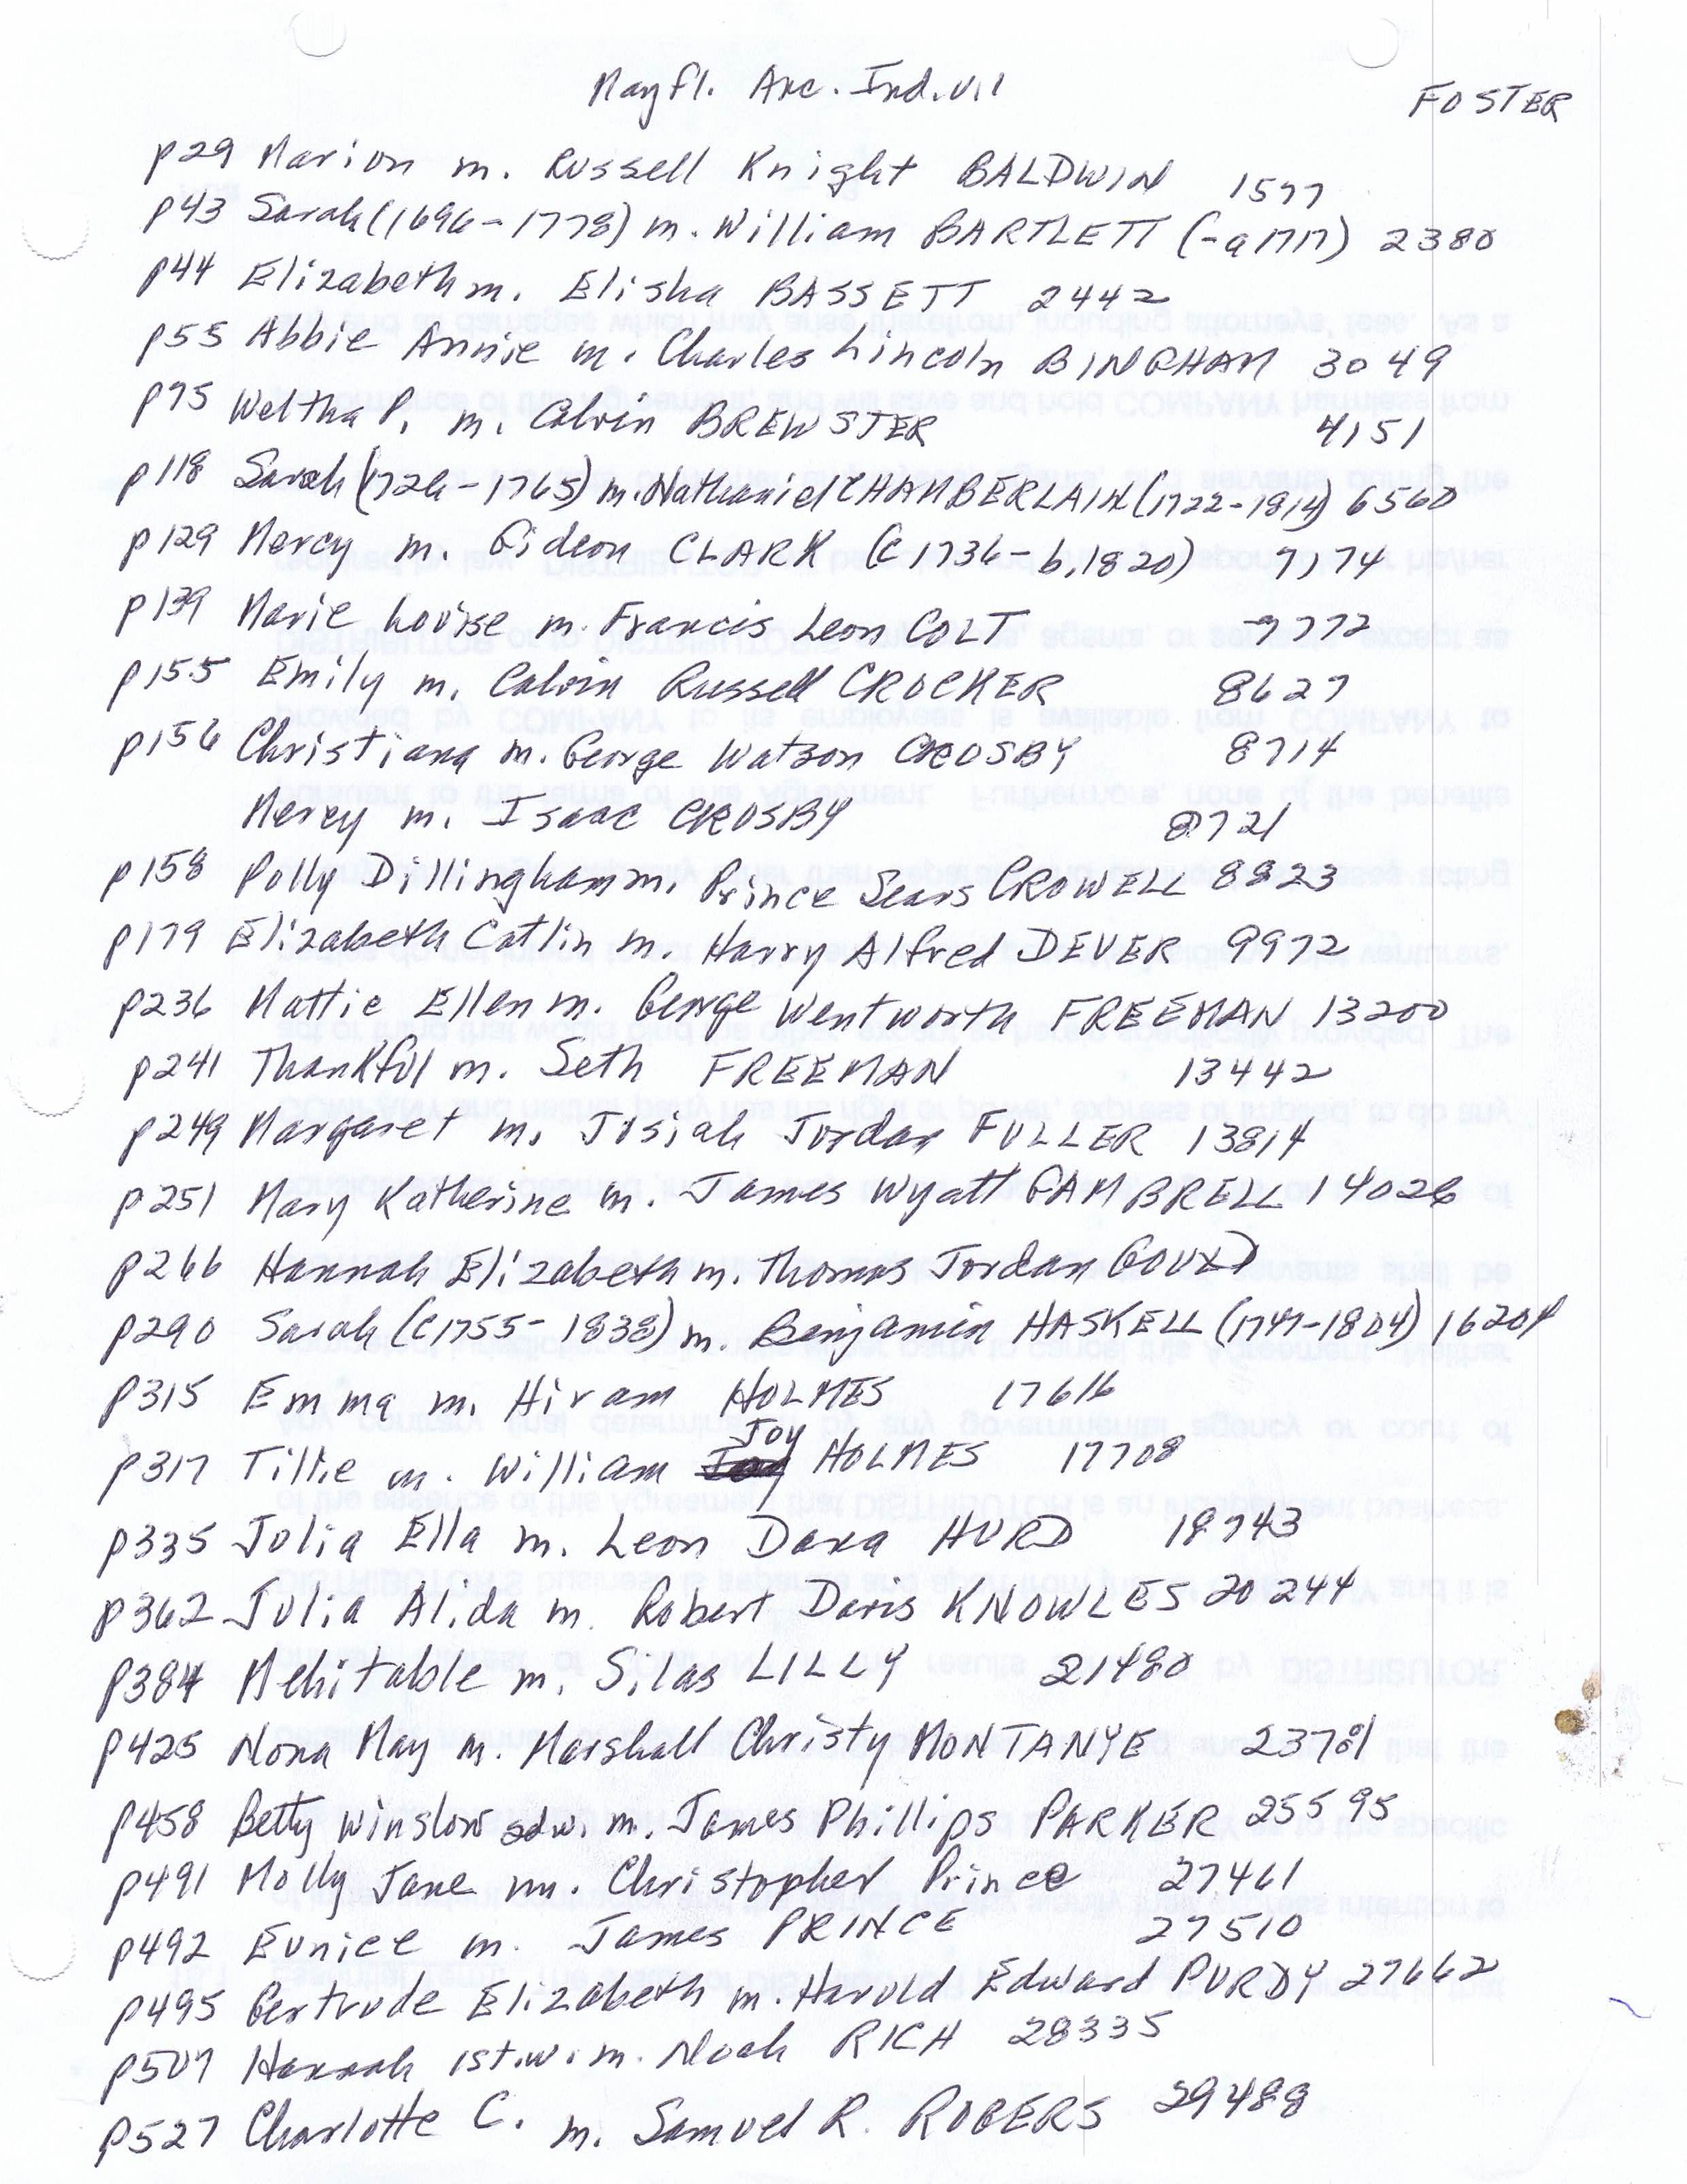 Mayfl. Anc. Ind. v.1 FOSTER
p29 Marion m. Russell Knight BALDWIN 1577
p43 Sarah (1696-1778) m. William BARTLETT (-a1717) 2380
p44 Elizabeth m. Elisha BASSETT 2442
p55 Abbie Annie m. Charles Lincoln BINGHAM 3049
p75 Weltha P. m. Calvin BREWSTER 4151
p118 Sarah (1726-1765) m. Nathaniel CHAMBERLAIN (1722-1814) 6560
p129 Mercy m. Gideon CLARK (c1736-b.1820) 7174
p139 Marie Louise m. Francis Leon COLT 7772
p155 Emily m. Calvin Russell CROCKER 8627
p156 Christiana m. George Watson CROSBY 8714
Mercy m. Isaac CROSBY 8721
p158 Polly Dillingham m. Prince Sears CROWELL 8823
p179 Elizabeth Catlin m. Harry Alfred DEVER 9972
p236 Mattie Ellen m. George Wentworth FREEMAN 13200
p241 Thankful m. Seth FREEMAN 13442
p249 Margaret m. Josiah Jordan FULLER 13814
p251 Mary Katherine m. James Wyatt GAMBRELL 14026
p266 Hannah Elizabeth m. Thomas Jordan GOULD
p290 Sarah (c1755-1838) m. Benjamin HASKELL (1747-1804) 16204
p315 Emma m. Hiram HOLMES 17616
p317 Tillie m. William Joy HOLMES 17708
p335 Julia Ella m. Leon Dana HURD 18743
p362 Julia Alida m. Robert Davis KNOWLES 20244
p384 Mehitable m. Silas LILLY 21480
p425 Nona May m. Marshall Christy MONTANYE 23781
p458 Betty Winslow 2dw. m. James Phillips PARKER 25595
p491 Molly Jane m. Christopher Prince 27461
p492 Eunice m. James PRINCE 27510
p495 Gertrude Elizabeth m. Harold Edward PURDY 27662
p507 Hannah 1st.w. m. Noah RICH 28335
p527 Charlotte C. m. Samuel R. ROGERS 29488